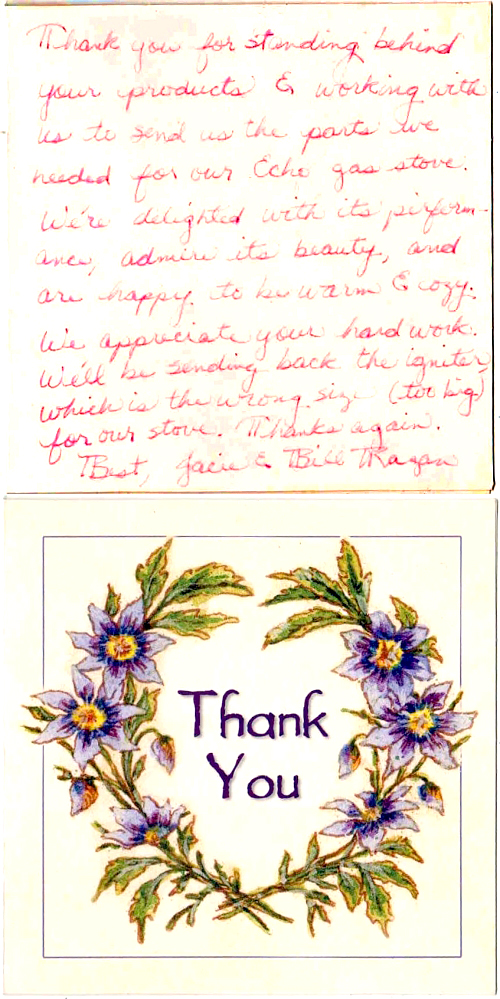 Thank you for standing behind
your products & working with
us to send us the parts we
needed for our Echo gas stove.
We're delighted with its perform-
ance, admire its beauty, and
are happy to be warm & cozy.
We appreciate your hard work.
We'll be sending back the igniter,
which is the wrong size (too big)
for our stove. Thanks again.
Best, Jacie & Bill Ragan
Thank
You